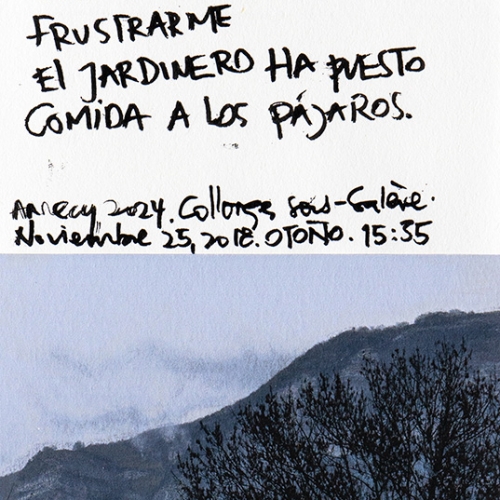 FRUSTRARME
El JARDINERO HA PUESTO
COMIDA A lOS PÁJAROS.
Annecy 2024. Collonges sous-Salève.
Noviembre 25, 2018. OTOÑO. 15:35